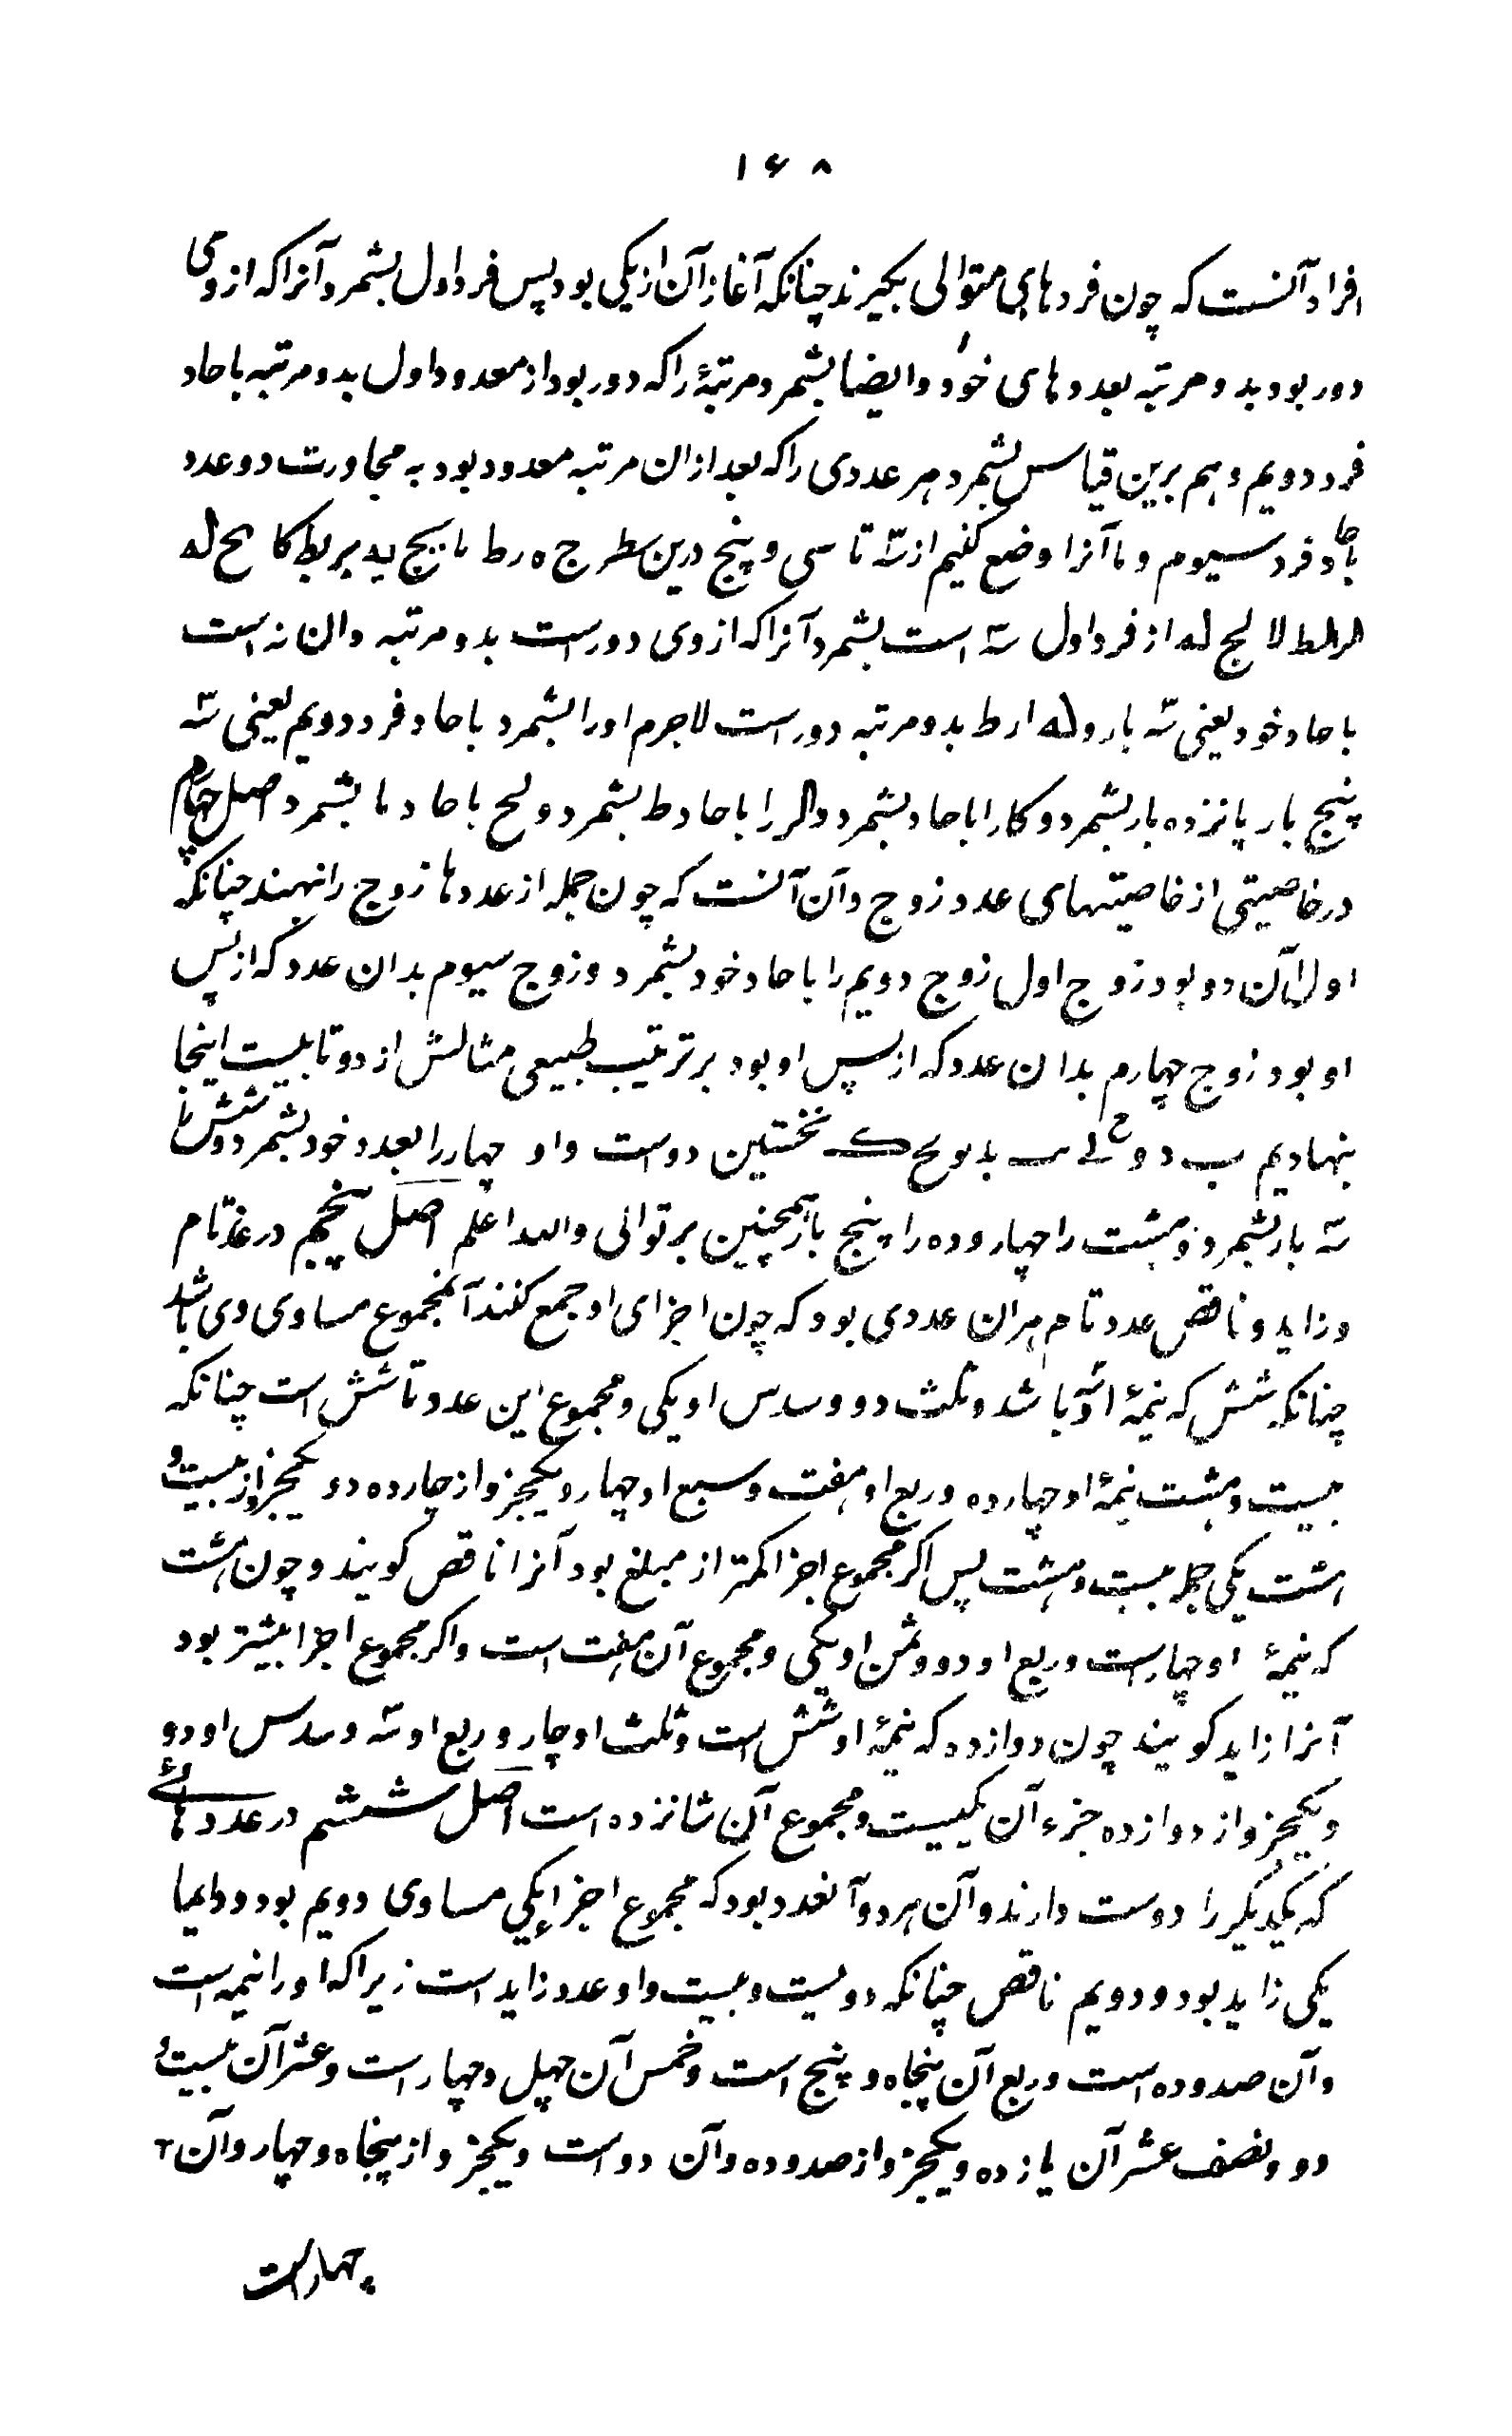 ۱۶۸
افراد آنست که چون فردهای متوالی بگیرند چنانکه آغاز آن از یکی بود پس فرد اول بشمرد آنرا که از وی
دور بود بدو مرتبه بعددهای خود و ایضا بشمرد مرتبۀ را که دور بود از معدود اول بدو مرتبه باحاد
فرد دویم و هم برین قیاس بشمرد هر عددی را که بعد ازان مرتبه معدود بود به مجاورت دو عدد
باحاد فرد سیوم و ما آنرا وضع کنیم از سه تا سی و پنج درین سطر ج ه ر ط یا یج یه یر یط کا
لا لج له از فرد اول سه است بشمرد آنرا که از وی دورست بدو مرتبه وان نه است
باحاد خود یعنی سه بار و له از ط بدو مرتبه دورست لاجرم اورا بشمرد باحاد فرد دویم یعنی سه
پنج بار پانزده بار بشمرد و کا را باحاد بشمرد و را باحاد ط بشمرد و لج باحاد یا بشمرد اصل چهارم
در خاصیتی از خاصیتهای عدد زوج و آن آنست که چون جمله از عددها زوج را نهند چنانکه
اول آن دو بود زوج اول زوج دویم را باحاد خود بشمرد و زوج سیوم بدان عدد که از پس
او بود زوج چهارم بدان عدد که از پس او بود بر ترتیب طبیعی مثالش از دو تا بیست اینجا
بنهادیم ب د و ح ی یب ید یو یح ک نخستین دوست و او چهار را بعدد خود بشمرد و شش را
سه بار بشمرد و هشت را چهار و ده را پنج بار همچنین بر توالی والله اعلم اصل پنجم در عدد تام
و زاید و ناقص عدد تام هران عددی بود که چون اجزای او جمع کنند آنمجموع مساوی وی باشد
چنانکه شش که نیمۀ او سه باشد و ثلث دو و سدس او یکی و مجموع این عددتا شش است چنانکه
بیست و هشت نیمۀ او چهارده و ربع او هفت و سبع او چهار و یکجزو از چارده دو و یکجزو از بیست و
هشت یکی جمله بیست و هشت پس اگر مجموع اجزا کمتر از مبلغ بود آنرا ناقص گویند و چون هشت
که نیمۀ او چهارست و ربع او دو و ثمن او یکی و مجموع آن هفت است و اگر مجموع اجزا بیشتر بود
آنرا زاید گویند چون دوازده که نیمۀ او شش است و ثلث او چار و ربع او سه و سدس او دو
و یکجزو از دوازده جزء آن یکیست و مجموع آن شانزده است اصل ششم در عددهائے
که یکدیگر را دوست دارند و آن هر دو آنعدد بود که مجموع اجزا یکی مساوی دویم بود و دایما
یکی زاید بود و دویم ناقص چنانکه دویست و بیست و او عدد زاید است زیرا که او را نیمه است
و آن صد و ده است و ربع آن پنجاه و پنج است و خمس آن چهل و چهار است و عشر آن بیست و
دو و نصف عشر آن یازده و یکجزو از صد و ده و آن دوست و یکجزو از پنجاه و چهار و آن ۲
چهارست